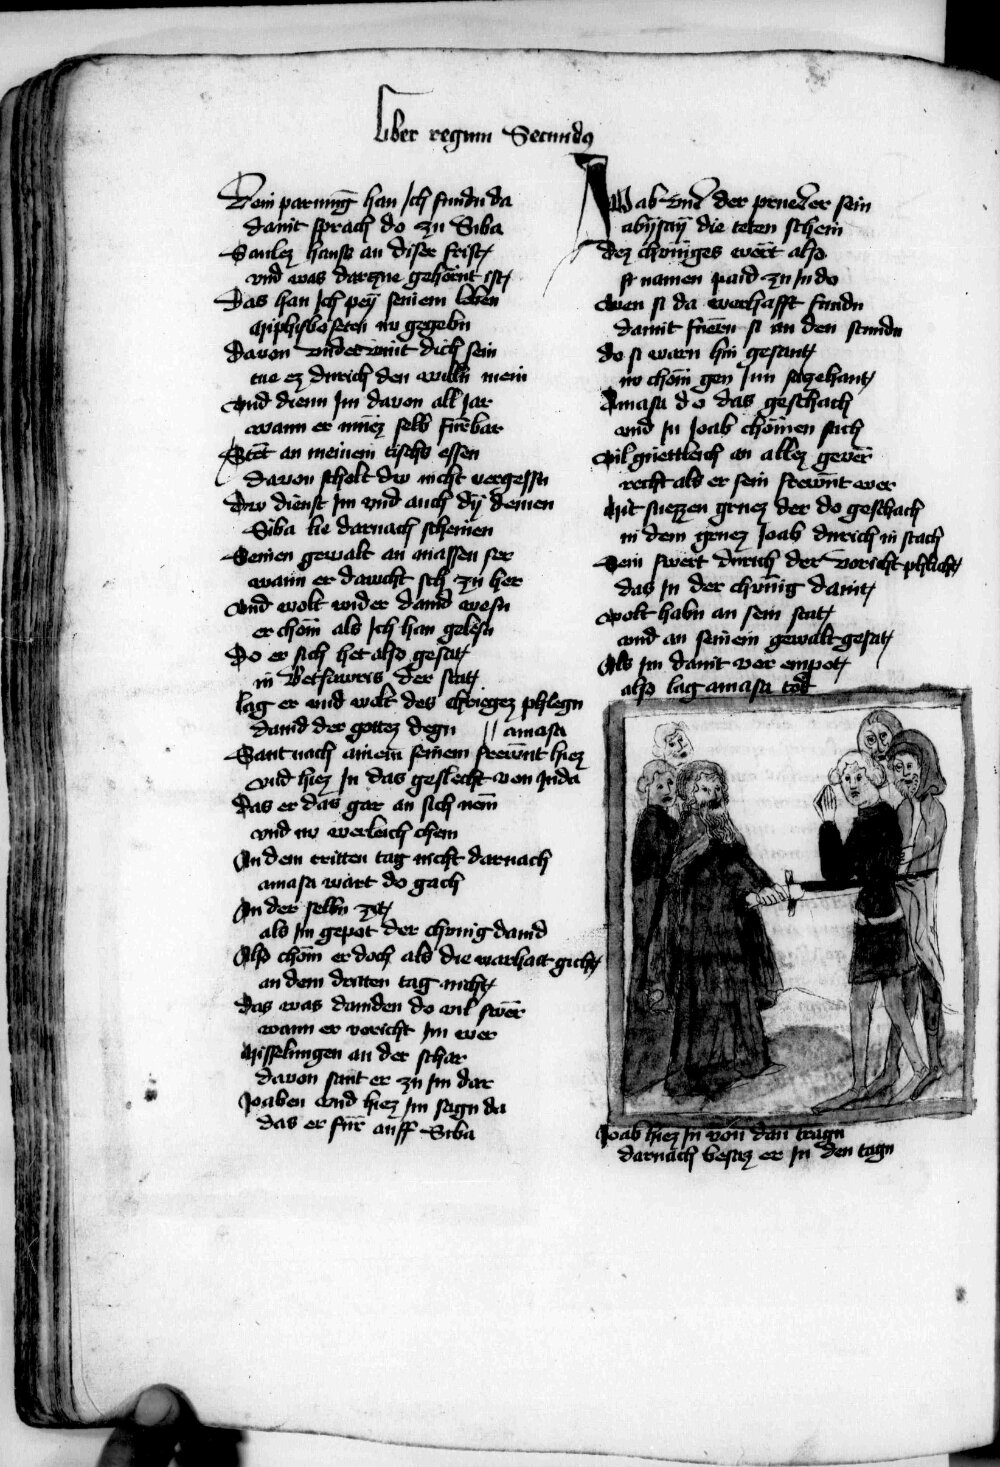 Liber regum Secundus
Dem parmung han Ich fundn da
damit sprach do zu Siba
Saulez hansß an diser frist
vnd was darzue gehörnt ist
Das han Ich pey seinem leben
Miphiboseten nv gegebn
Davon vnderwint dich sein
tue ez durich den willn mein
vnd dienn Im davon all Jar
wann er muez selb fürbar
Stet an meinem tischs essen
davon scholt dw nicht vergessn
Dw dienst Im vnd auch dy deinen
Siba lie darnach scheinen
Seinen gewalt an massen ser
wann er dawcht sich zu her
vnd wolt wider dauid wesn
er chöm als Ich han gelesn
Do er sich het also gesat
in Betsaweris der stat
lag er vnd wolt des chriegez phlegn
dauid der gottez degn // amasa
Sant nach ainem seinem frewnt hiez
vnd hiez In das geslecht von Juda
Das er das gar an sich nem
vnd nv werleich chem
An dem tritten tag nicht darnach
amasa wart do gach
An der selbn zeit
als Im gepot der chunig dauid
Also chöm er doch als die warhait gicht
an dem dritten tag nicht
Das was dauiden do vil swer
wann er voricht Im wer
Misselungen an der schar
davon sant er zu Im dar
Joaben vnd hiez Im sagn da
das er für auff Siba
Joab vnd der prueder sein
abysay die teten schein
dez chöniges wort also
si namen paid zu In do
wen si da werhafft fundn
damit fuern si an den stundn
do si warn hin gesant
nv chöm gen Im sazehant
Amasa do das geschach
vnd In Joab chömen sach
vil guettleich an allez gever
recht als er sein frewnt wer
Mit suezzen gruez der do geschach
in dem gruez Joab durich in stach
Sein swert durich der voricht phlicht
das In der chunig damit
wolt habn an sein stat
vnd an seinem gewalt gesat
Als Im damit vor enpot
also lag amasa tod
Joab hiez In von dan tragn
darnach besaz er In den tagn